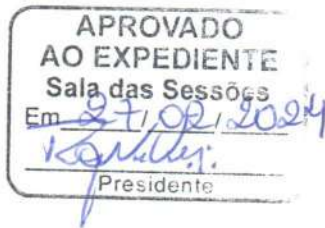 APROVADO
AO EXPEDIENTE
Sala das Sessões
Em 27/02/2024
Presidente